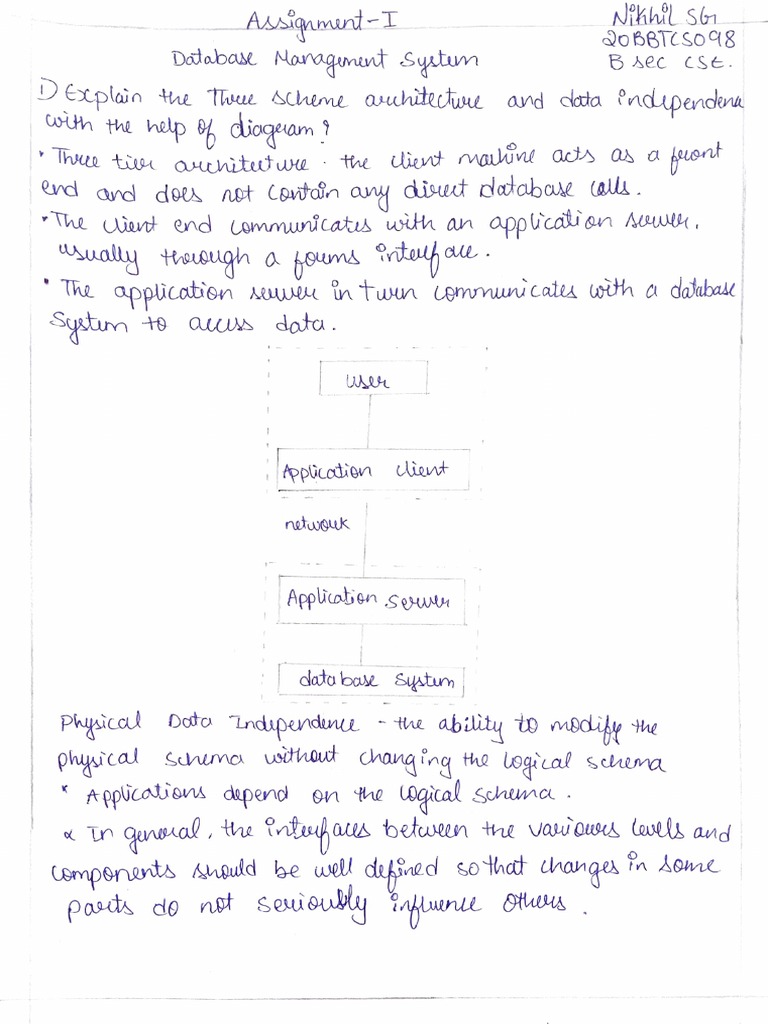 Assignment-I
Nikhil SG
20BBTCS098
Database Management System
B sec CSE.
1) Explain the Three scheme architecture and data independena
with the help of diagram?
• Three tier architecture. the client machine acts as a front
end and does not contain any direct database calls.
• The client end communicates with an application server,
usually through a forms interface.
• The application server in turn communicates with a database
System to access data.
user
Application client
network
Application Server
database System
Physical Data Independence - the ability to modify the
physical schema without changing the logical schema
* Applications depend on the logical schema.
∝ In general, the interfaces between the variours levels and
components should be well defined so that changes in some
parts do not seriously influence others.